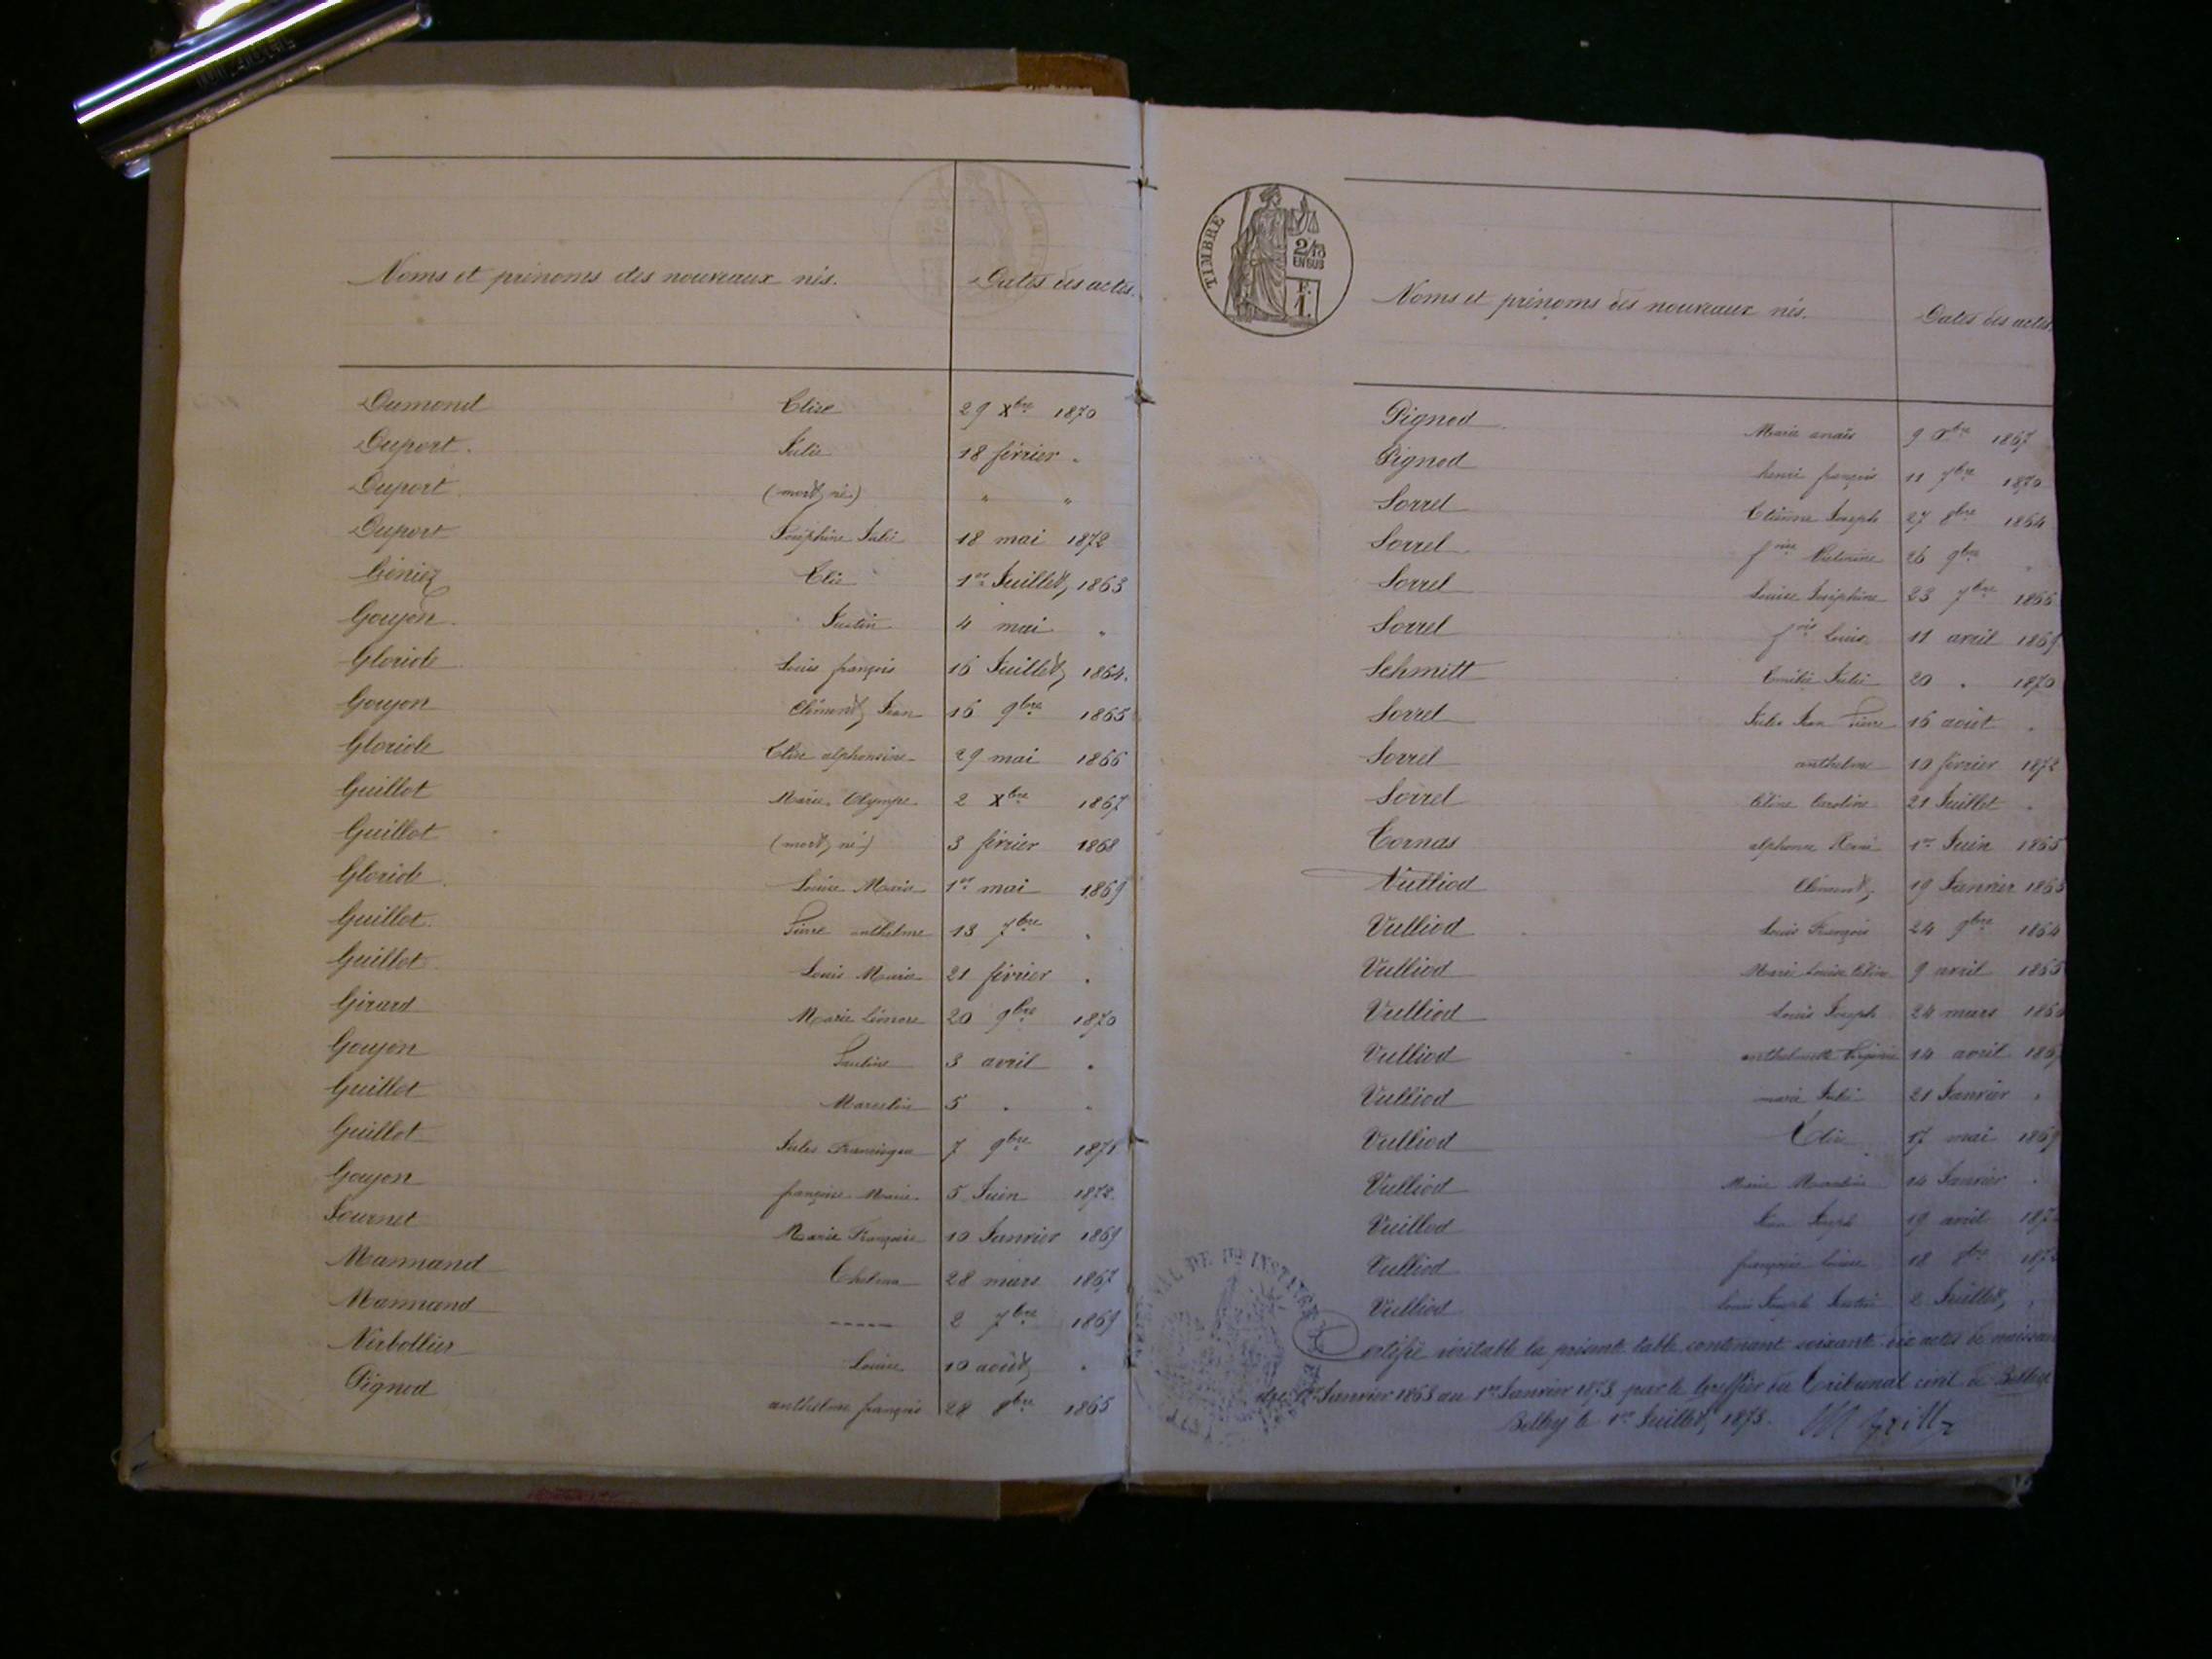 Noms et prénoms des nouveaux nés. Dates des actes.
Dumond Elise 29 Xbre 1870
Duport. Julie 18 février "
Duport (mort né) " "
Duport Joséphine Julie 18 mai 1872
Géniez Elie 1er Juillet 1863
Goujon. Justin 4 mai "
Gloriod Louis françois 16 Juillet 1864.
Goujon Clément Jean 16 9bre 1865
Gloriod Elise alphonsine 29 mai 1866
Guillot Marie Olympe 2 Xbre 1867
Guillot (mort né) 3 février 1868
Gloriod. Louise Marie 1er mai 1869
Guillot. Pierre anthelme 13 7bre "
Guillot Louis Marie 21 février "
Girard Marie Léonore 20 9bre 1870
Goujon Pauline 3 avril "
Guillot Marcelin 5 " "
Guillot Jules Francisque 7 9bre 1871
Goujon françoise Marie 5 Juin 1872
Journet Marie Françoise 10 Janvier 1869
Marmand 28 mars 1867
Marmand ----- 2 7bre 1869
Nirbollier Louise 10 août "
Pignod anthelme françois 28 8bre 1865
TIMBRE
2/10
EN SUS
F.
1.
Noms et prénoms des nouveaux nés. Dates des actes.
Pignod Marie anaïs 9 1867
Pignod henri françois 11 7bre 1870
Sorrel Etienne Joseph 27 8bre 1864
Sorrel 26 9bre "
Sorrel Louise Joséphine 23 7bre 1866
Sorrel fois Louis 11 avril 1869
Schmitt Emilie Julie 20 " 1870
Sorrel Jules Jean Pierre 16 août "
Sorrel anthelme 10 février 1872
Sorrel Céline Caroline 21 Juillet "
Tornas alphonse René 1er Juin 1865
Vulliod Clément 19 Janvier 1863
Vulliod Louis François 24 9bre 1864
Vulliod Marie Louise Céline 9 avril 1865
Vulliod Louis Joseph 24 mars
Vulliod anthelmette 14 avril
Vulliod marie Julie 21 Janvier "
Vulliod Elie 17 mai 1869
Vulliod Marie 14 Janvier "
Vulliod Jean Joseph 19 avril
Vulliod françoise Louise 18 8bre
Vulliod Louis Joseph 2 Juillet "
DE 1re INSTANCE
Certifié véritable la présente table contenant soixante dix actes de naissance
du 1er Janvier 1863 au 1er Janvier 1873 par le Greffier du Tribunal civil de Belley
Belley le 1er Juillet 1873.